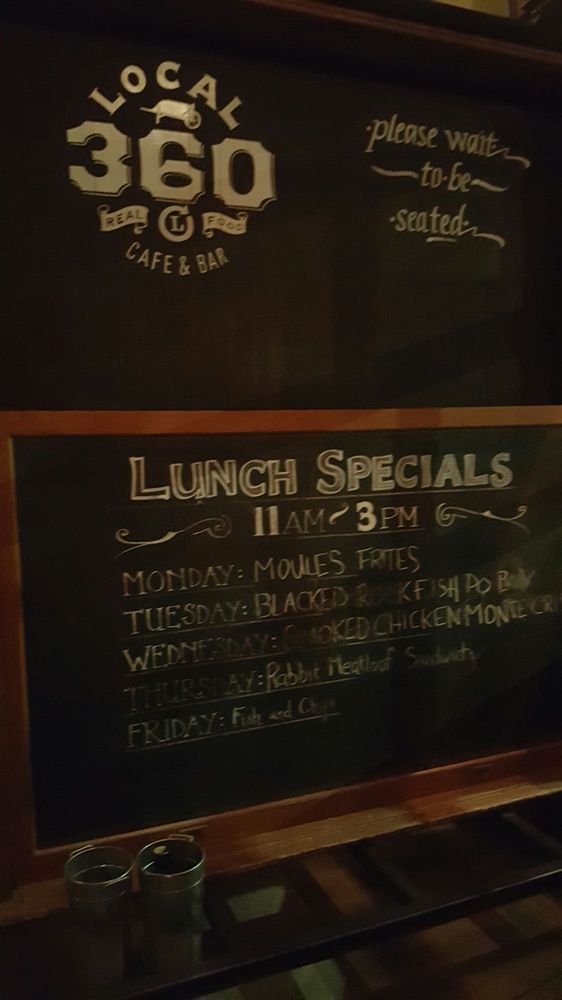 LOCAL
360
REAL L FOOD
CAFE & BAR
·please wait·
to·be
·seated·
LUNCH SPECIALS
11AM ~ 3PM
MONDAY: MOULES FRITES
TUESDAY: BLACKED ROCKFISH PO BOY
WEDNESDAY: SMOKED CHICKEN MONTE CRI
THURSDAY: Rabbit Meatloaf Sandwich
FRIDAY: Fish and Chips